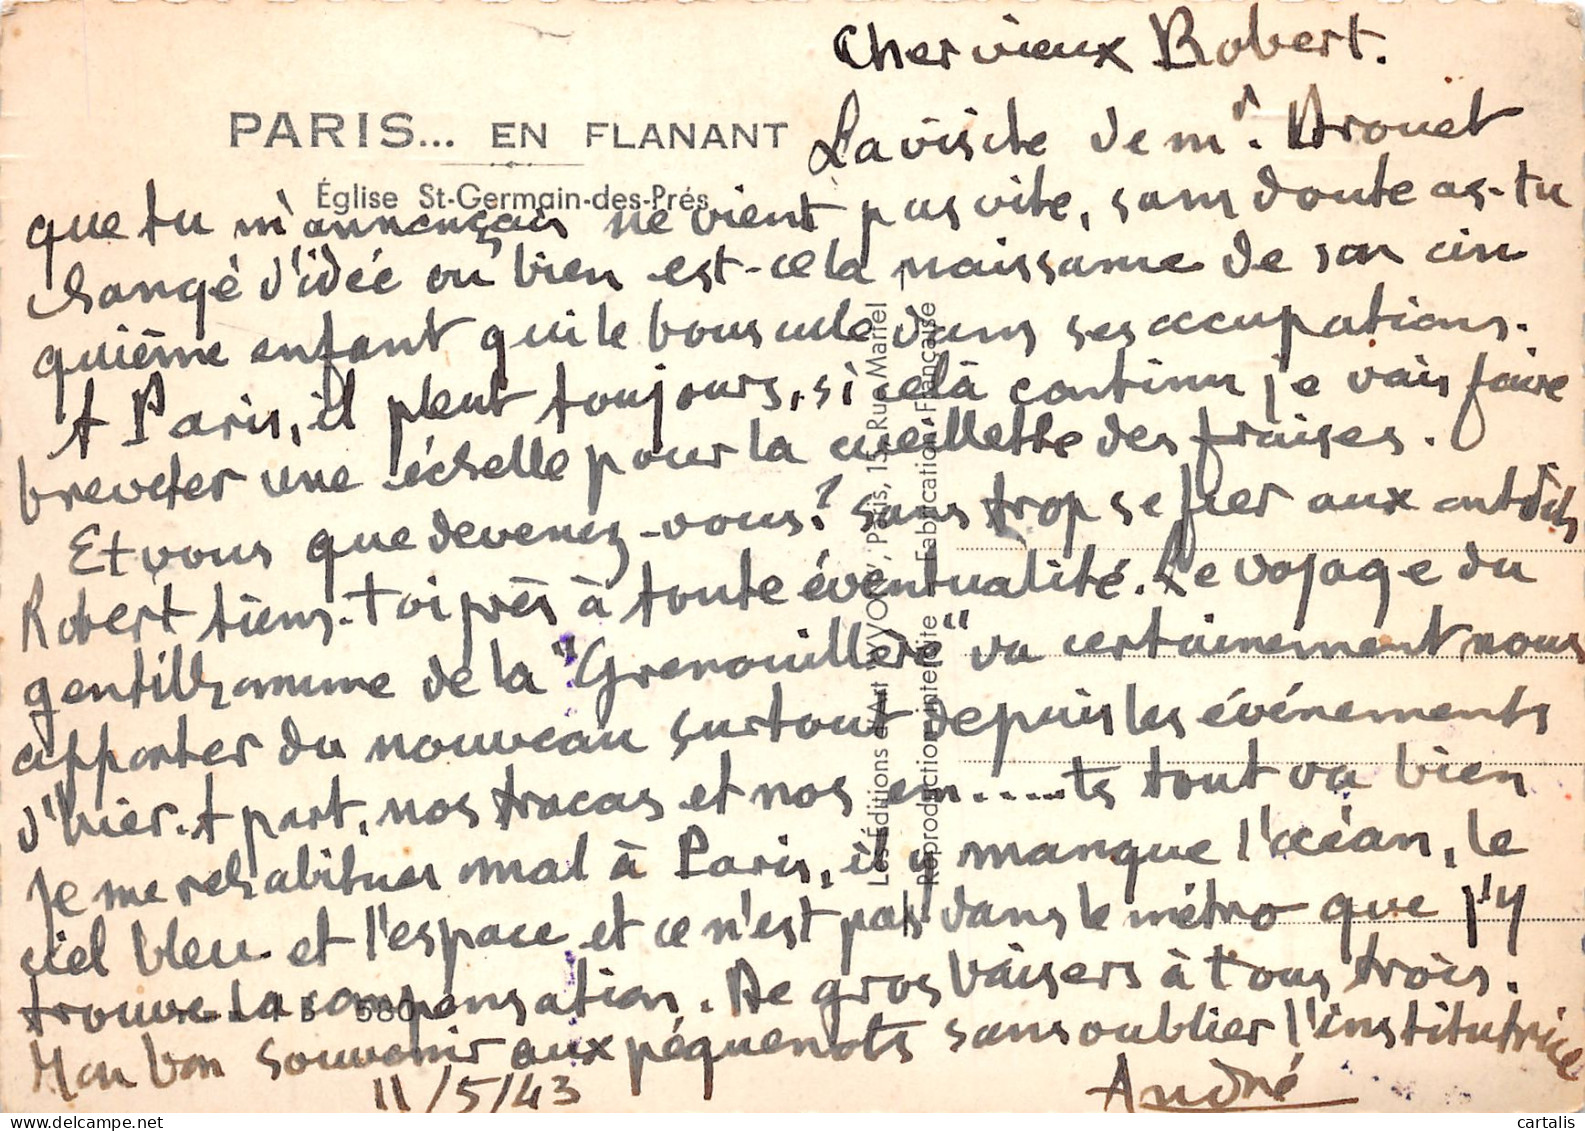 Cher vieux Robert.
PARIS... EN FLANANT
La visite de mr. Drouet
Église St-Germain-des-Prés
que tu m'annonçais ne vient pas vite, sans doute as-tu
changé d'idée ou bien est-ce la naissance de son cin
quième enfant qui le bouscule dans ses occupations.
A Paris, il pleut toujours, si celà continu je vais faire
breveter une échelle pour la cueillette des fraises.
Et vous que devenez-vous? Sans trop se fier aux
Robert tiens-toi près à toute éventualité. Le voyage du
gentilhomme de la "Grenouillère" va certainement nous
apporter du nouveau surtout depuis les événements
d'hier. A part, nos tracas et nos em.....ts tout va bien
Je me rehabitues mal à Paris, il y manque l'océan, le
ciel bleu et l'espace et ce n'est pas dans le métro que j'y
trouve la compensation. De gros baisers à tous trois.
Mon bon souvenir aux péquenots sans oublier l'institutrice
11/5/43
André
580
Les Éditions d'Art YVON, Paris, 15, Rue Martel
Reproduction interdite - Fabrication Française
cartalis
delcampe.net